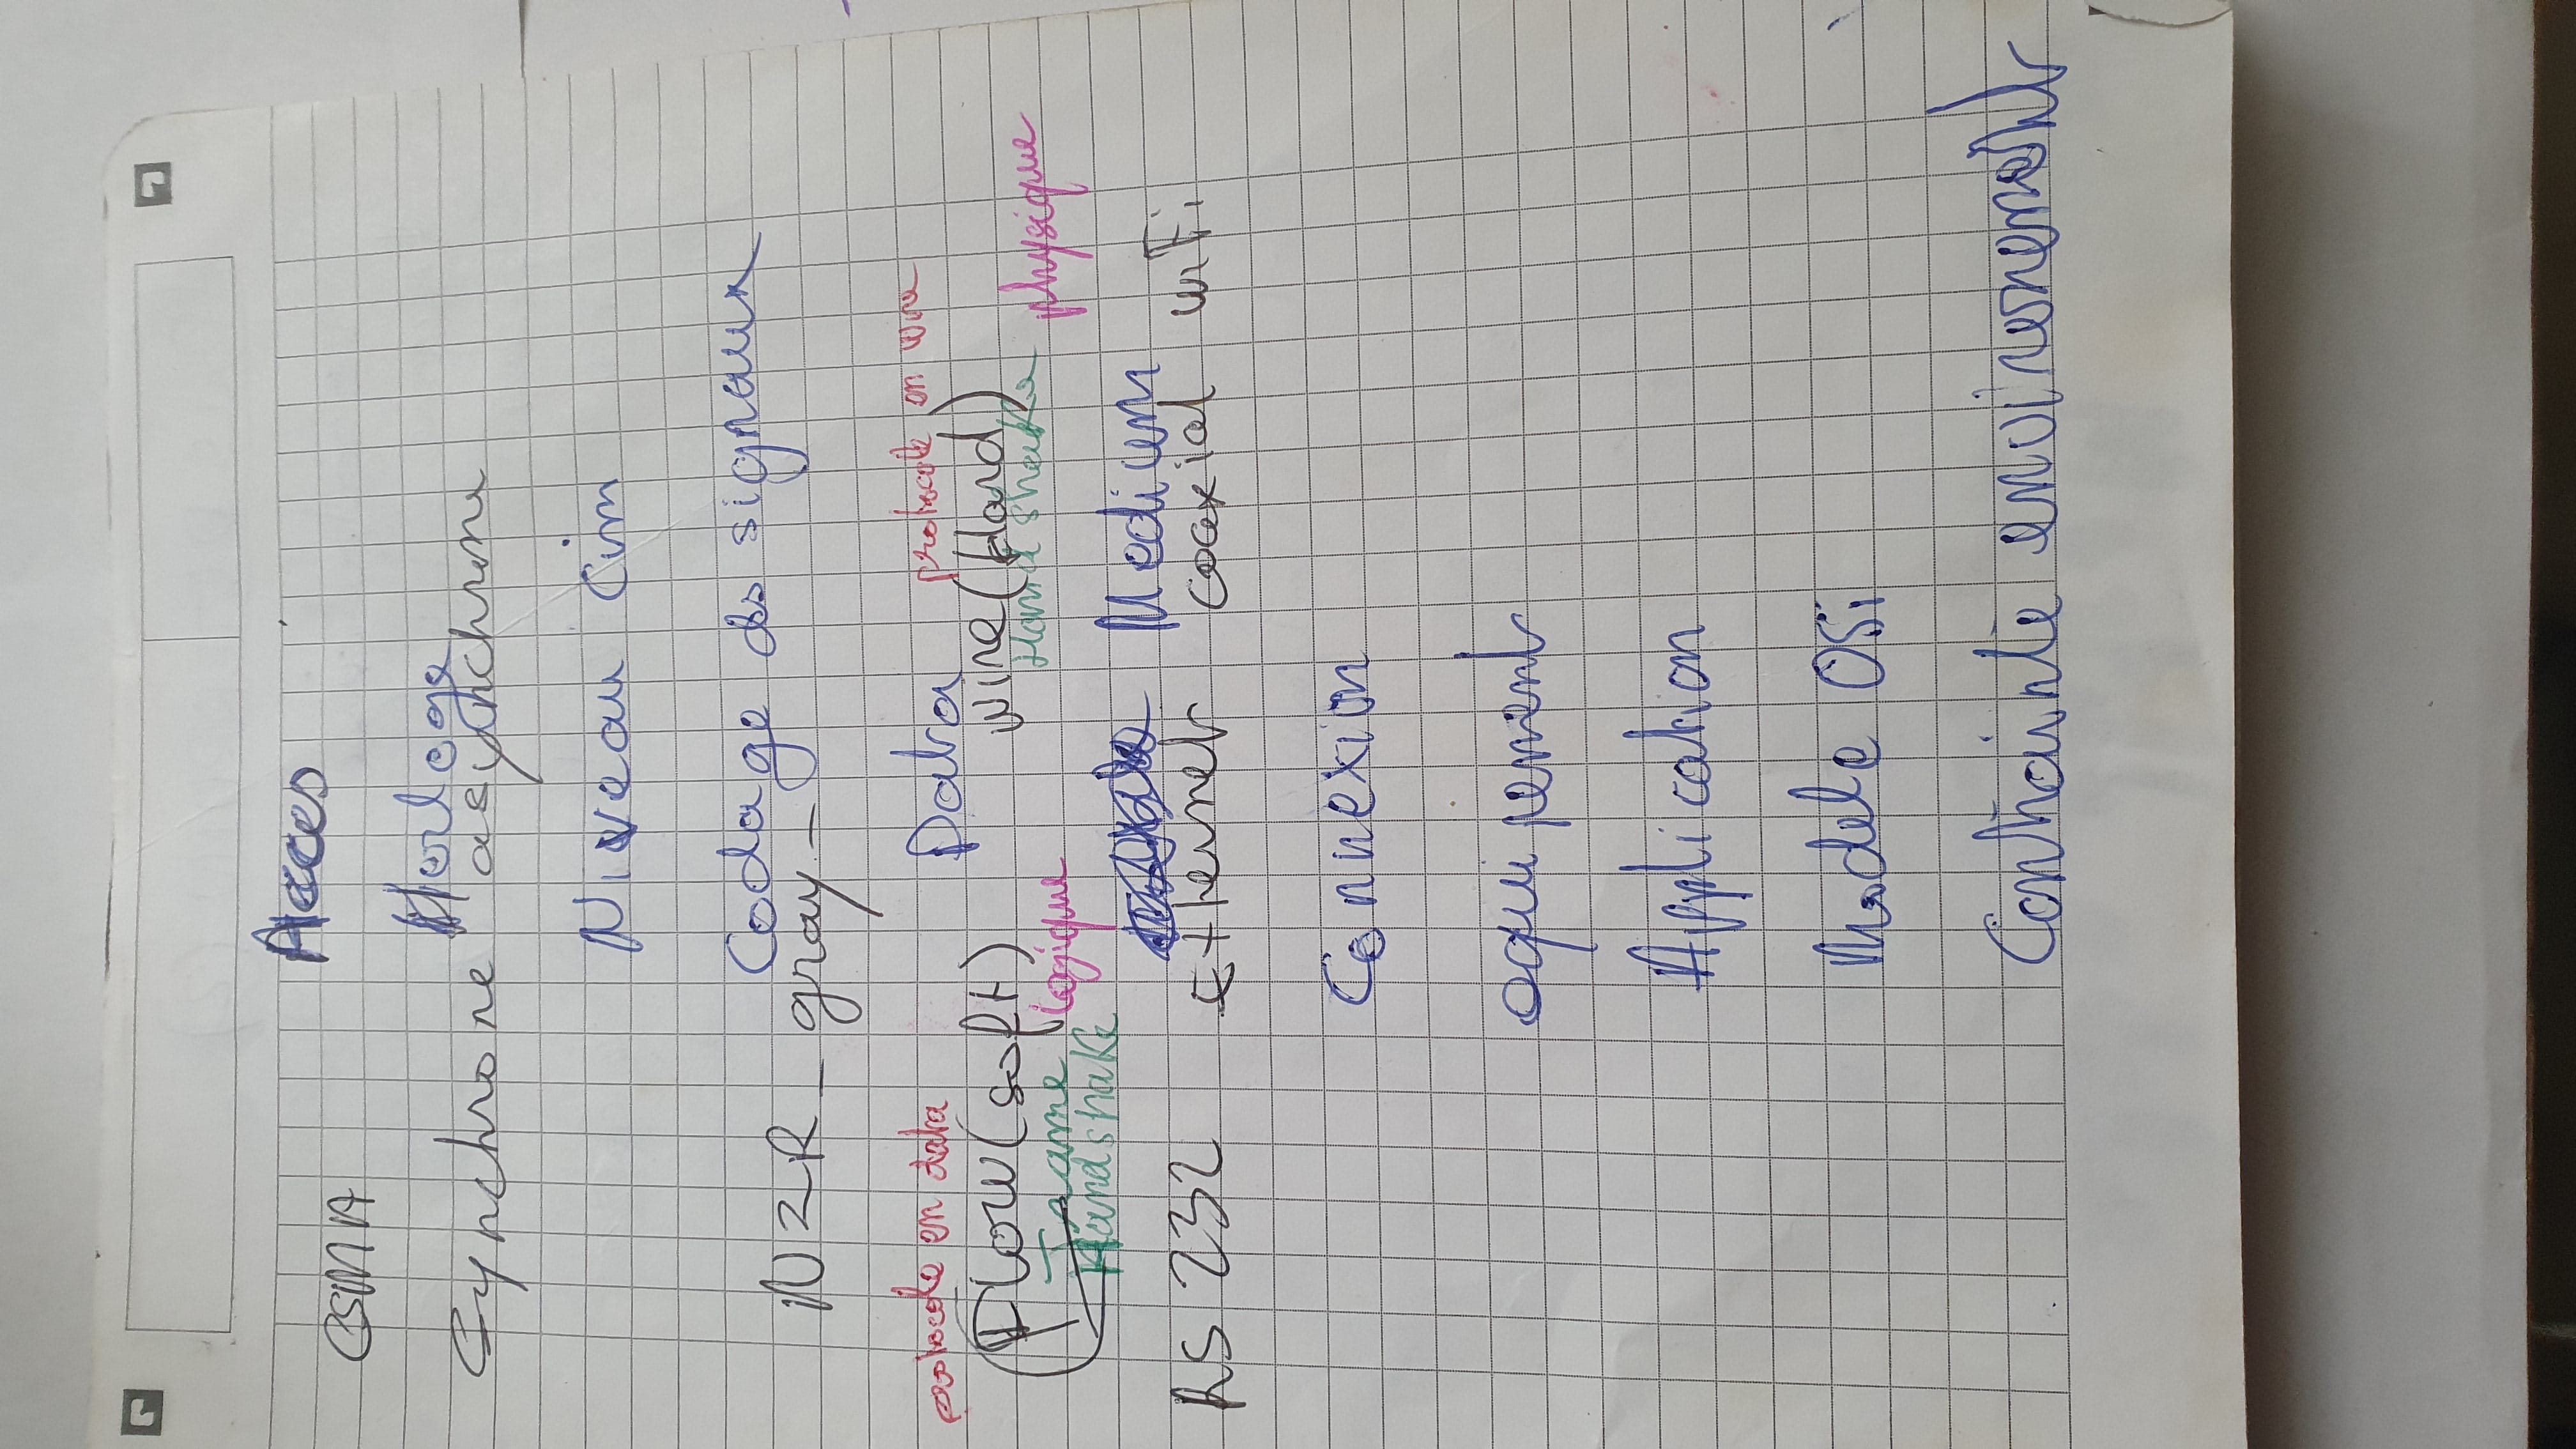 Acces
CSMA
Horloge
Synchrone asynchrone
Niveau Cim
Codage des signaux
NZR_ gray _
protocole en data Data protocole en wire
Flow (soft) wire (Hard)
Trame logique Hand shake physique
Handshake
Medium
RS 232 Ethernet coaxial wiFi
Connexion
equipement
Application
Modele OSi
Contrainte environement